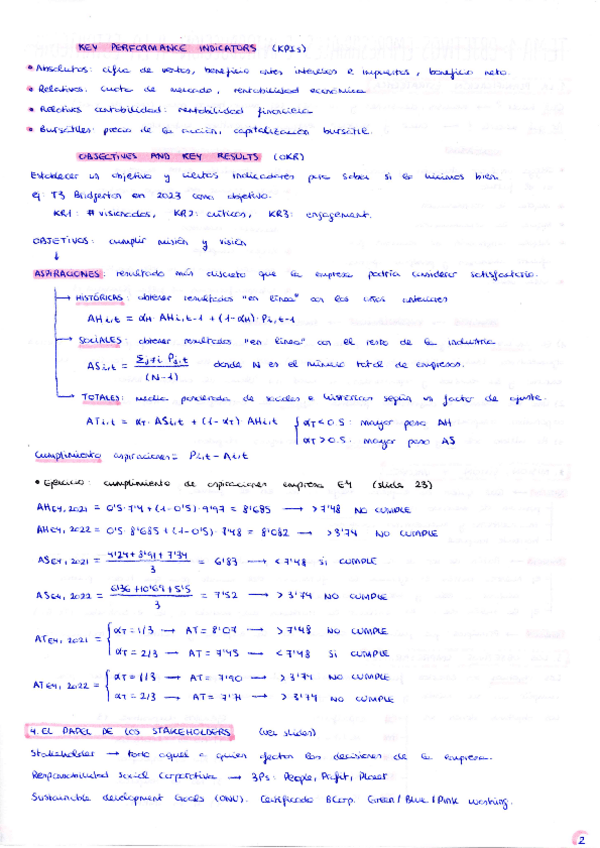 KEY PERFORMANCE INDICATORS (KPIs)
• Absolutos: cifra de ventas, beneficio antes intereses e impuestos, beneficio neto.
• Relativos: cuota de mercado, rentabilidad económica
• Relativos contabilidad: rentabilidad financiera
• Bursátiles: precio de la acción, capitalización bursátil.
OBJECTIVES AND KEY RESULTS (OKR)
Establecer un objetivo y ciertos indicadores para saber si lo hicimos bien.
ej: T3 Bridgerton en 2023 como objetivo.
KR1: # visionados, KR2: críticas, KR3: engagement.
OBJETIVOS: cumplir misión y visión
↓
ASPIRACIONES: resultado más discreto que la empresa podría considerar satisfactorio.
→ HISTÓRICAS: obtener resultados "en línea" con los años anteriores
AHi,t = αH · AHi,t-1 + (1-αH) · Pi,t-1
→ SOCIALES: obtener resultados "en línea" con el resto de la industria
ASi,t = Σj≠i Pj,t / (N-1) donde N es el número total de empresas.
→ TOTALES: media ponderada de sociales e históricas según un factor de ajuste.
ATi,t = αT · ASi,t + (1-αT) AHi,t { αT < 0.5: mayor peso AH
αT > 0.5: mayor peso AS
Cumplimiento aspiraciones = Pi,t - Ai,t
• Ejercicio: cumplimiento de aspiraciones empresa E4 (slide 23)
AHE4, 2021 = 0'5 · 7'4 + (1-0'5) · 9'97 = 8'685 → > 7'48 NO CUMPLE
AHE4, 2022 = 0'5 · 8'685 + (1-0'5) · 7'48 = 8'082 → > 3'74 NO CUMPLE
ASE4, 2021 = 4'24 + 8'91 + 7'34 / 3 = 6'83 → < 7'48 SI CUMPLE
ASE4, 2022 = 6'36 + 10'69 + 5'5 / 3 = 7'52 → > 3'74 NO CUMPLE
ATE4, 2021 = { αT = 1/3 → AT = 8'07 → > 7'48 NO CUMPLE
αT = 2/3 → AT = 7'45 → < 7'48 SI CUMPLE
ATE4, 2022 = { αT = 1/3 → AT = 7'90 → > 3'74 NO CUMPLE
αT = 2/3 → AT = 7'71 → > 3'74 NO CUMPLE
4. EL PAPEL DE LOS STAKEHOLDERS (ver slides)
Stakeholder → todo aquel a quien afectan las decisiones de la empresa.
Responsabilidad Social Corporativa → 3Ps: People, Profit, Planet
Sustainable development Goals (ONU). Certificado BCorp. Green / Blue / Pink washing.
2